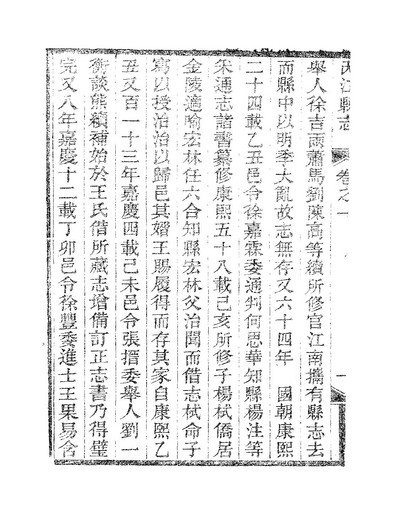 內江縣志 卷之一 一
舉人徐吉兩蕭馬劉陳高等續所修官江南攜有縣志去
而縣中以明季大亂故志無存又六十四年 國朝康熙
二十四載乙丑邑令徐嘉霖委通判何思華知縣楊注等
采通志諸書纂修康熙五十八載己亥所修子楊栻僑居
金陵適喻宏林任六合知縣宏林父治聞而借志栻命子
寫以授治治以歸邑其婿王賜履得而存其家自康熙乙
丑又百一十三年嘉慶四載己未邑令張搢委舉人劉一
衡談熊續補始於王氏借所藏志增備訂正志書乃得璧
完又八年嘉慶十二載丁卯邑令徐豐委進士王果易含